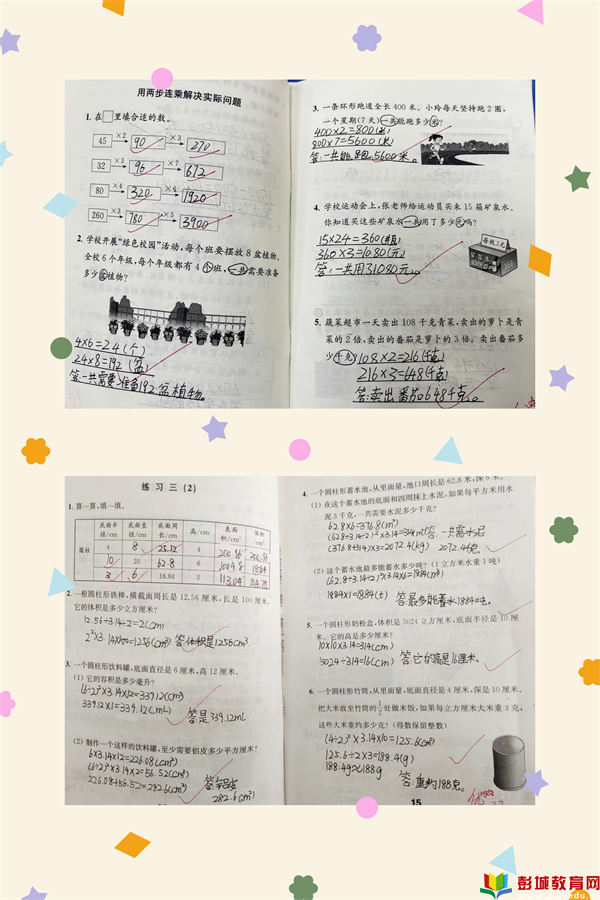 用两步连乘解决实际问题
1. 在□里填合适的数。
45 ×2 90 ×3 270
32 ×3 96 ×7 672
80 ×4 320 ×6 1920
260 ×3 780 ×5 3900
2. 学校开展“绿色校园”活动,每个班要摆放8盆植物,
全校6个年级,每个年级都有4个班,一共需要准备
多少盆植物?
4×6=24(个)
24×8=192(盆)
答:一共需要准备192盆植物。
3. 一条环形跑道全长400米。小玲每天坚持跑2圈,
一个星期(7天)一共能跑多少米?
400×2=800(米)
800×7=5600(米)
答:一共能跑5600米。
4. 学校运动会上,张老师给运动员买来15箱矿泉水。
你知道买这些矿泉水一共用了多少元吗?
每瓶3元
15×24=360(瓶)
360×3=1080(元)
答:一共用了1080元。
5. 蔬菜超市一天卖出108千克青菜,卖出的萝卜是青
菜的2倍,卖出的番茄是萝卜的3倍。卖出番茄多
少千克?
108×2=216(千克)
216×3=648(千克)
答:卖出番茄648千克。
练习三(2)
1. 算一算,填一填。
底面半径/cm 底面直径/cm 底面周长/cm 高/cm 表面积/cm² 体积/cm³
圆柱 4 8 25.12 4
10 20 62.8 6 1884
3 6 18.84 3
2. 一根圆柱形铁棒,横截面周长是12.56厘米,长是100厘米,
它的体积是多少立方厘米?
12.56÷3.14÷2=2(cm)
2²×3.14×100=1256(cm³) 答:体积是1256cm³.
3. 一个圆柱形饮料罐,底面直径是6厘米,高12厘米。
(1) 它的容积是多少毫升?
(6÷2)²×3.14×12=339.12(cm³)
339.12×1=339.12(mL)
答:是339.12mL.
(2) 制作一个这样的饮料罐,至少需要铝皮多少平方厘米?
6×3.14×12=226.08(cm²)
(6÷2)²×3.14×2=56.52(cm²)
226.08+56.52=282.6(cm²)
282.6cm²
4. 一个圆柱形蓄水池,从里面量,池口周长是62.8米,深6米。
(1) 在这个蓄水池的底面和四周抹上水泥,如果每平方米用水
泥3千克,一共需要水泥多少千克?
62.8×6=376.8(m²)
(62.8÷3.14÷2)²×3.14=314(m²)
(376.8+314)×3=2072.4(kg)
2072.4kg.
(2) 这个蓄水池最多能蓄水多少吨? (1立方米水重1吨)
(62.8÷3.14÷2)²×3.14×6=1884(m³)
1884×1=1884(t) 答:最多能蓄水1884吨.
5. 一个圆柱形奶粉盒,体积是5024立方厘米,底面半径是10厘
米。它的高是多少厘米?
10×10×3.14=314(cm²)
5024÷314=16(cm) 答:它的高是16厘米.
6. 一个圆柱形竹筒,从里面量,底面直径是4厘米,深是10厘米。
把大米放至竹筒的1/2处做米饭,如果每立方厘米大米重3克,
这些大米重约多少克? (得数保留整数)
(4÷2)²×3.14×10=125.6(cm³)
125.6÷2×3=188.4(g)
188.4g≈188g
答:重约188克.
15
彭城教育网